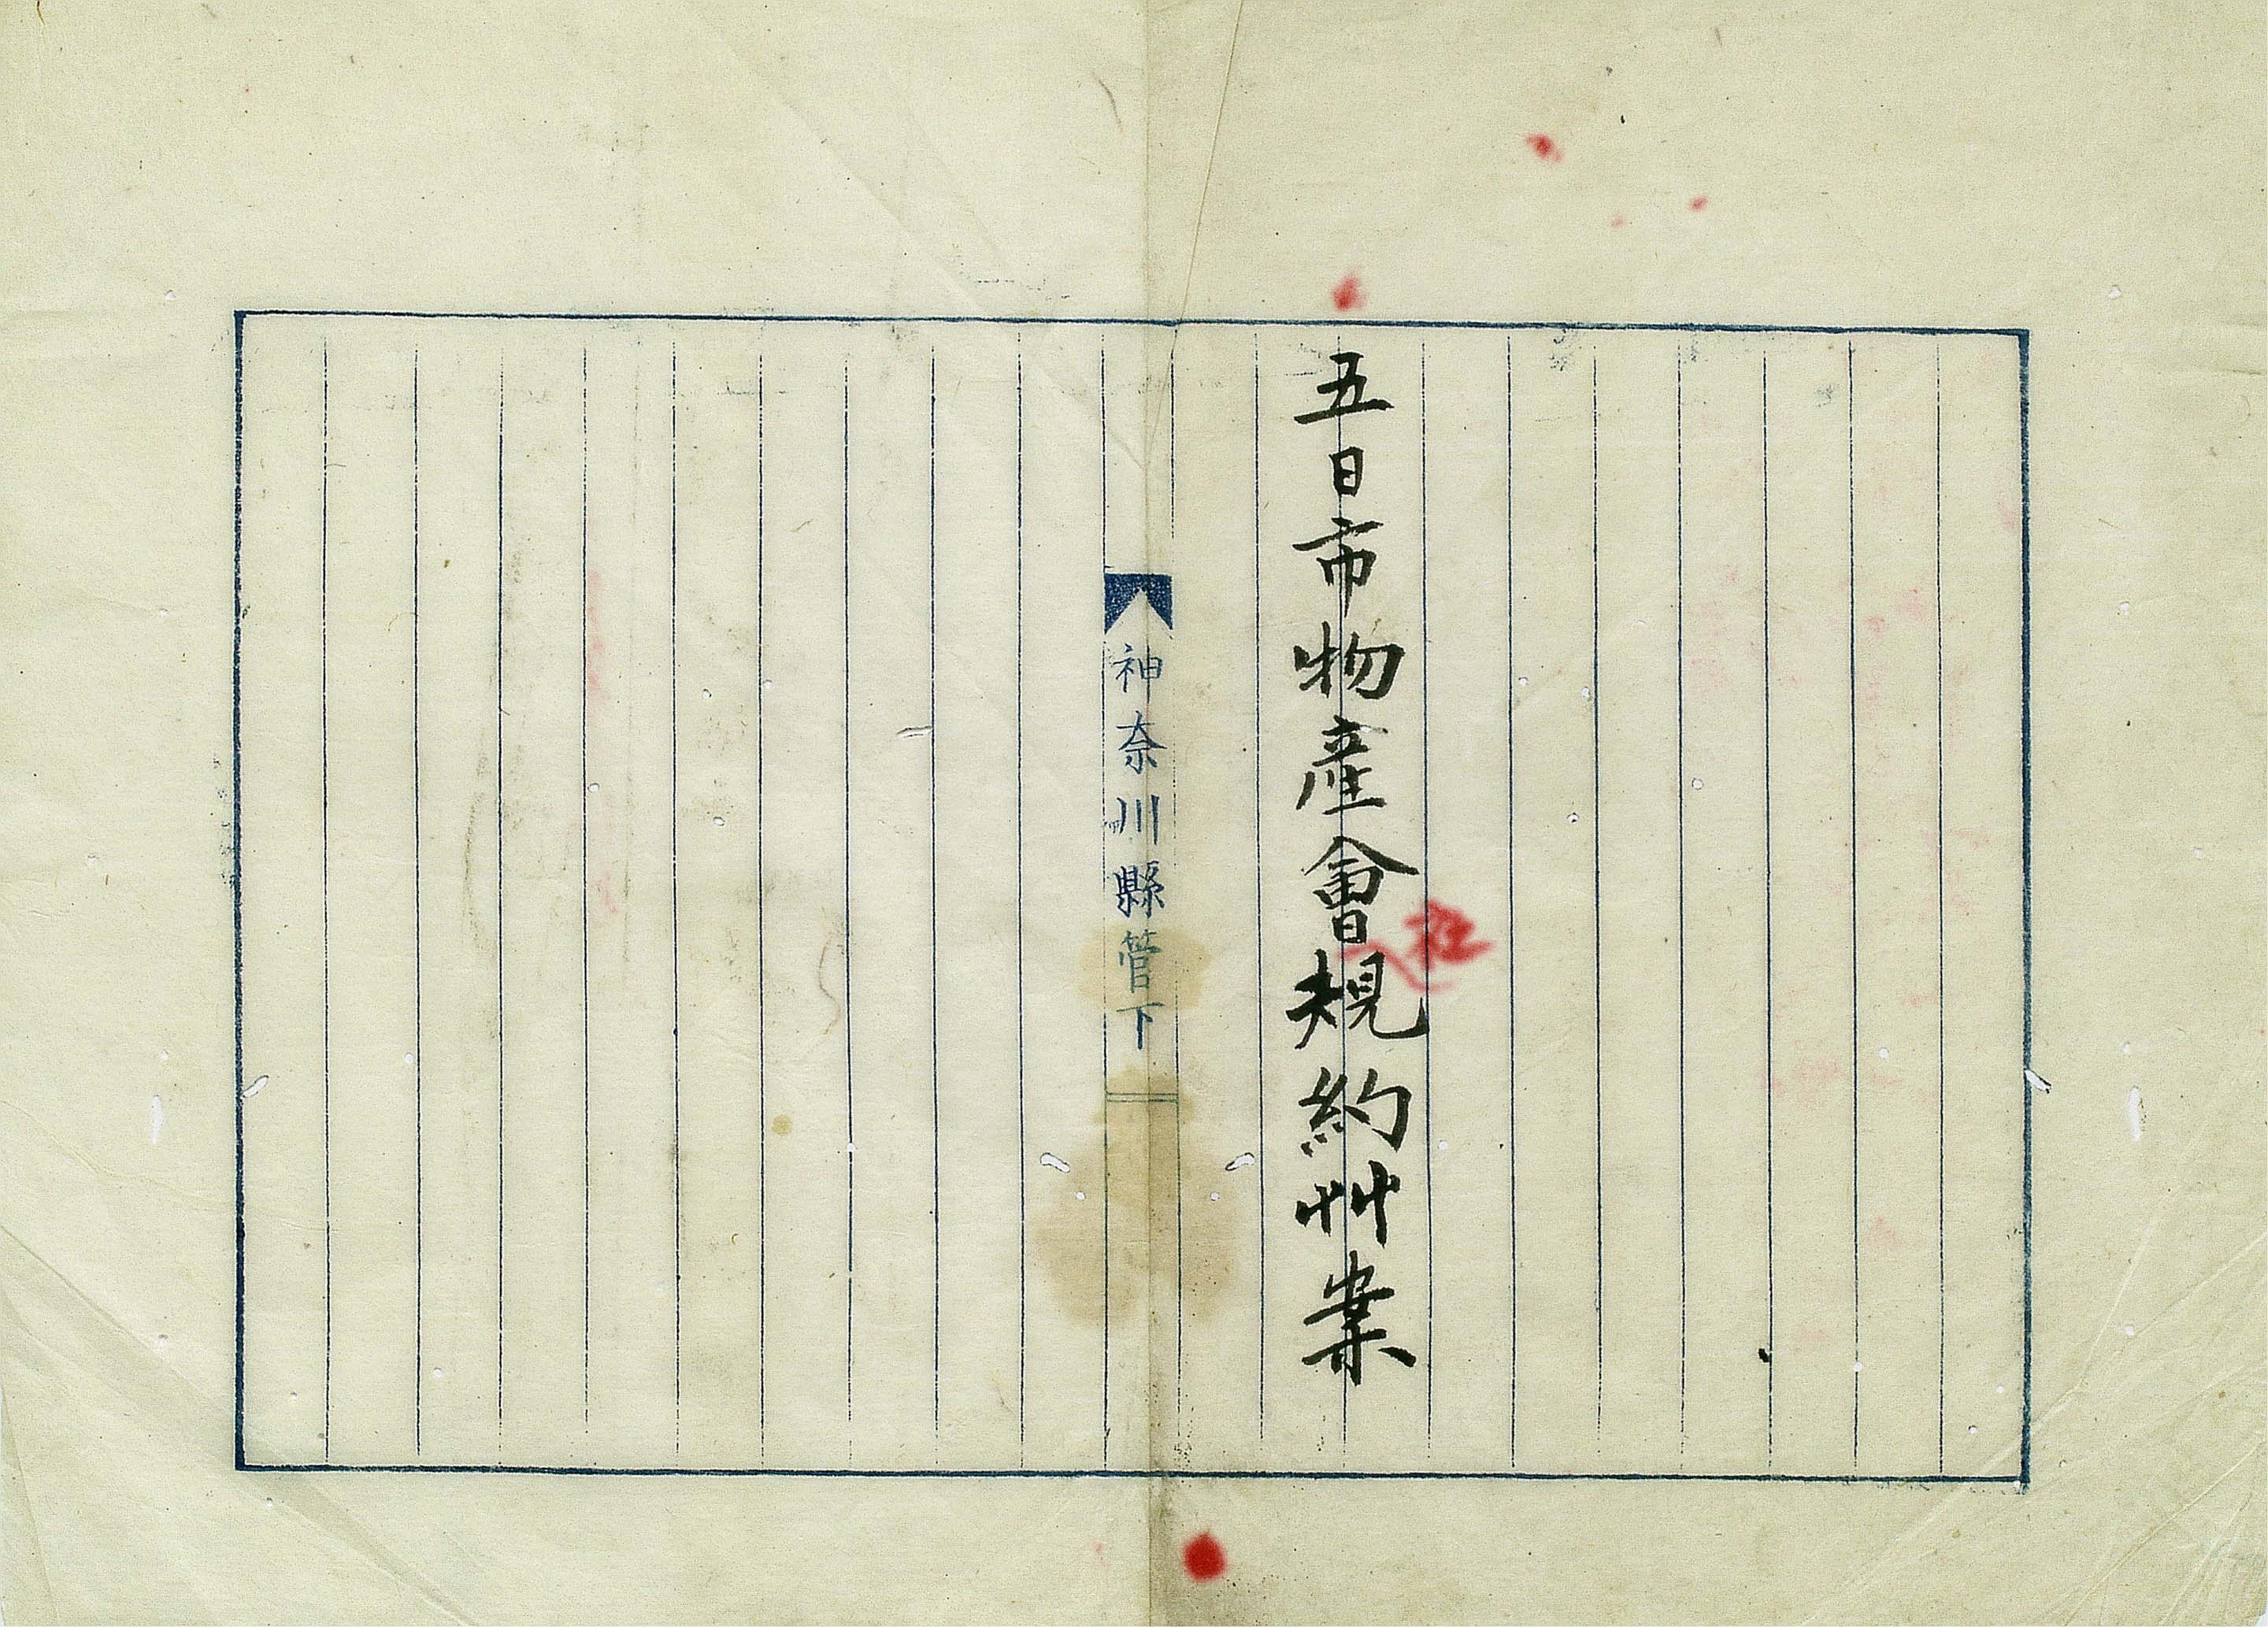 五日市物產會社規約艸案
神奈川縣管下